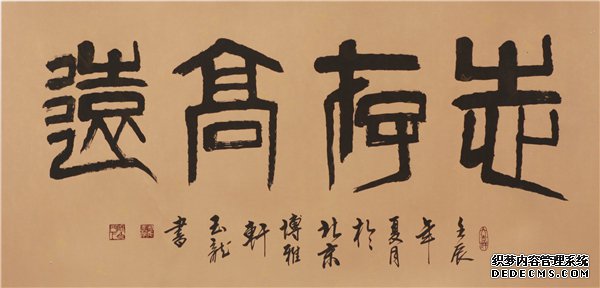 志存高遠
壬辰年夏月於北京博雅軒玉龍書
织梦内容管理系统
DEDECMS.COM